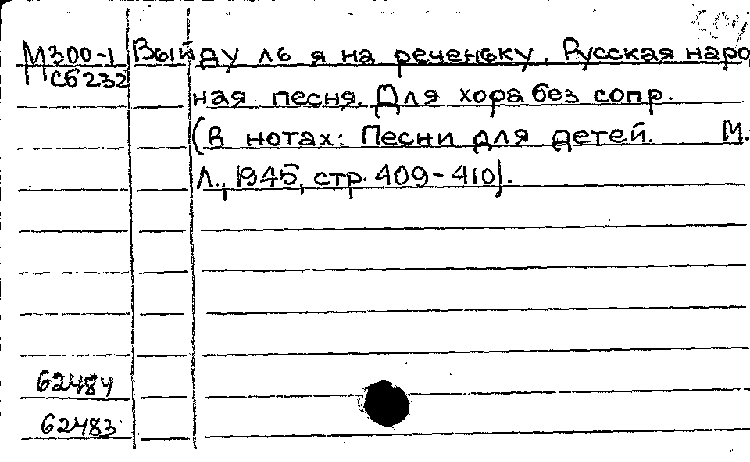 М300-1 Выйду ль я на реченьку. Русская народ
Сб232
ная песня. Для хора без сопр.
(В нотах: Песни для детей. М.
Л., 1945, стр. 409-410).
62484
62483